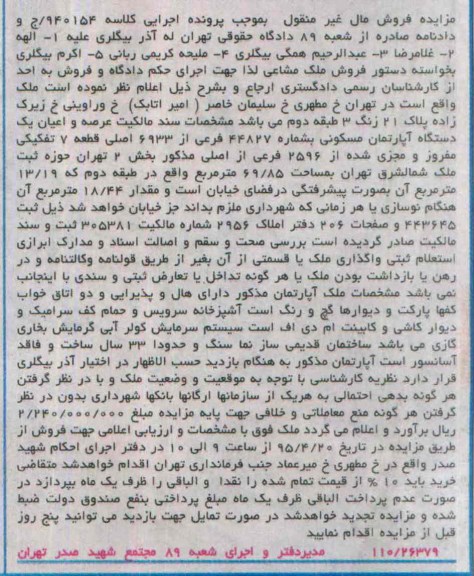 مزایده فروش مال غیر منقول بموجب پرونده اجرایی کلاسه ۹۴۰۱۵۴/ج و
دادنامه صادره از شعبه ۸۹ دادگاه حقوقی تهران له آذر بیگلری علیه ۱- الهه
۲- غلامرضا ۳- عبدالرحیم همگی بیگلری ۴- ملیحه کریمی ربانی ۵- اکرم بیگلری
بخواسته دستور فروش ملک مشاعی لذا جهت اجرای حکم دادگاه و فروش به احد
از کارشناسان رسمی دادگستری ارجاع و بشرح ذیل اعلام نظر نموده است ملک
واقع است در تهران خ مطهری خ سلیمان خاصر ( امیر اتابک) خ وراوینی خ زیرک
زاده پلاک ۲۱ زنگ ۳ طبقه دوم می باشد مشخصات سند مالکیت عرصه و اعیان یک
دستگاه آپارتمان مسکونی بشماره ۴۴۸۲۷ فرعی از ۶۹۳۳ اصلی قطعه ۷ تفکیکی
مفروز و مجزی شده از ۲۵۹۶ فرعی از اصلی مذکور بخش ۲ تهران حوزه ثبت
ملک شمالشرق تهران بمساحت ۶۹/۸۵ مترمربع واقع در طبقه دوم که ۱۳/۱۹
مترمربع آن بصورت پیشرفتگی درفضای خیابان است و مقدار ۱۸/۴۴ مترمربع آن
هنگام نوسازی یا هر زمانی که شهرداری ملزم بداند جز خیابان خواهد شد ذیل ثبت
۴۴۳۶۴۵ و صفحات ۲۰۶ دفتر املاک ۲۹۵۶ شماره مالکیت ۳۰۵۳۸۱ ثبت و سند
مالکیت صادر گردیده است بررسی صحت و سقم و اصالت اسناد و مدارک ابرازی
استعلام ثبتی واگذاری ملک یا قسمتی از آن بغیر از طریق قولنامه وکالتنامه و در
رهن یا بازداشت بودن ملک یا هر گونه تداخل یا تعارض ثبتی و سندی با اینجانب
نمی باشد مشخصات ملک آپارتمان مذکور دارای هال و پذیرایی و دو اتاق خواب
کفها پارکت و دیوارها گچ و رنگ است آشپزخانه سرویس و حمام کف سرامیک و
دیوار کاشی و کابینت ام دی اف است سیستم سرمایش کولر آبی گرمایش بخاری
گازی می باشد ساختمان قدیمی ساز نما سنگ و حدودا ۳۳ سال ساخت و فاقد
آسانسور است آپارتمان مذکور به هنگام بازدید حسب الاظهار در اختیار آذر بیگلری
قرار دارد نظریه کارشناسی با توجه به موقعیت و وضعیت ملک و با در نظر گرفتن
هر گونه بدهی احتمالی به هریک از سازمانها ارگانها بانکها شهرداری بدون در نظر
گرفتن هر گونه منع معاملاتی و خلافی جهت پایه مزایده مبلغ ۲/۲۴۰/۰۰۰/۰۰۰
ریال برآورد و اعلام می گردد ملک فوق با مشخصات و ارزیابی اعلامی جهت فروش از
طریق مزایده در تاریخ ۹۵/۴/۲۰ از ساعت ۹ الی ۱۰ در دفتر اجرای احکام شهید
صدر واقع در خ مطهری خ میرعماد جنب فرمانداری تهران اقدام خواهدشد متقاضی
خرید باید ۱۰ % از قیمت تمام شده را نقدا و الباقی را ظرف یک ماه بپردازد در
صورت عدم پرداخت الباقی ظرف یک ماه مبلغ پرداختی بنفع صندوق دولت ضبط
شده و مزایده تجدید خواهدشد در صورت تمایل جهت بازدید می توانید پنج روز
قبل از مزایده اقدام نمایید
۱۱۰/۲۶۳۷۹ مدیردفتر و اجرای شعبه ۸۹ مجتمع شهید صدر تهران